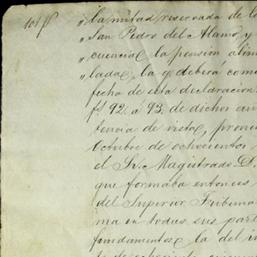 "la mitad reservada de lo
"San Pedro del Alamo, y
"cuencia la pension alim
"lada, la q. deberá com
fecha de esta declaracion
fs. 92. á 93. de dichos au
tencia de vista, pronu
Octubre de ochocientos
el Sr. Magistrado D.
que formaba entonces
del Superior Tribuna
ma en todas sus part
fundamentos la del in